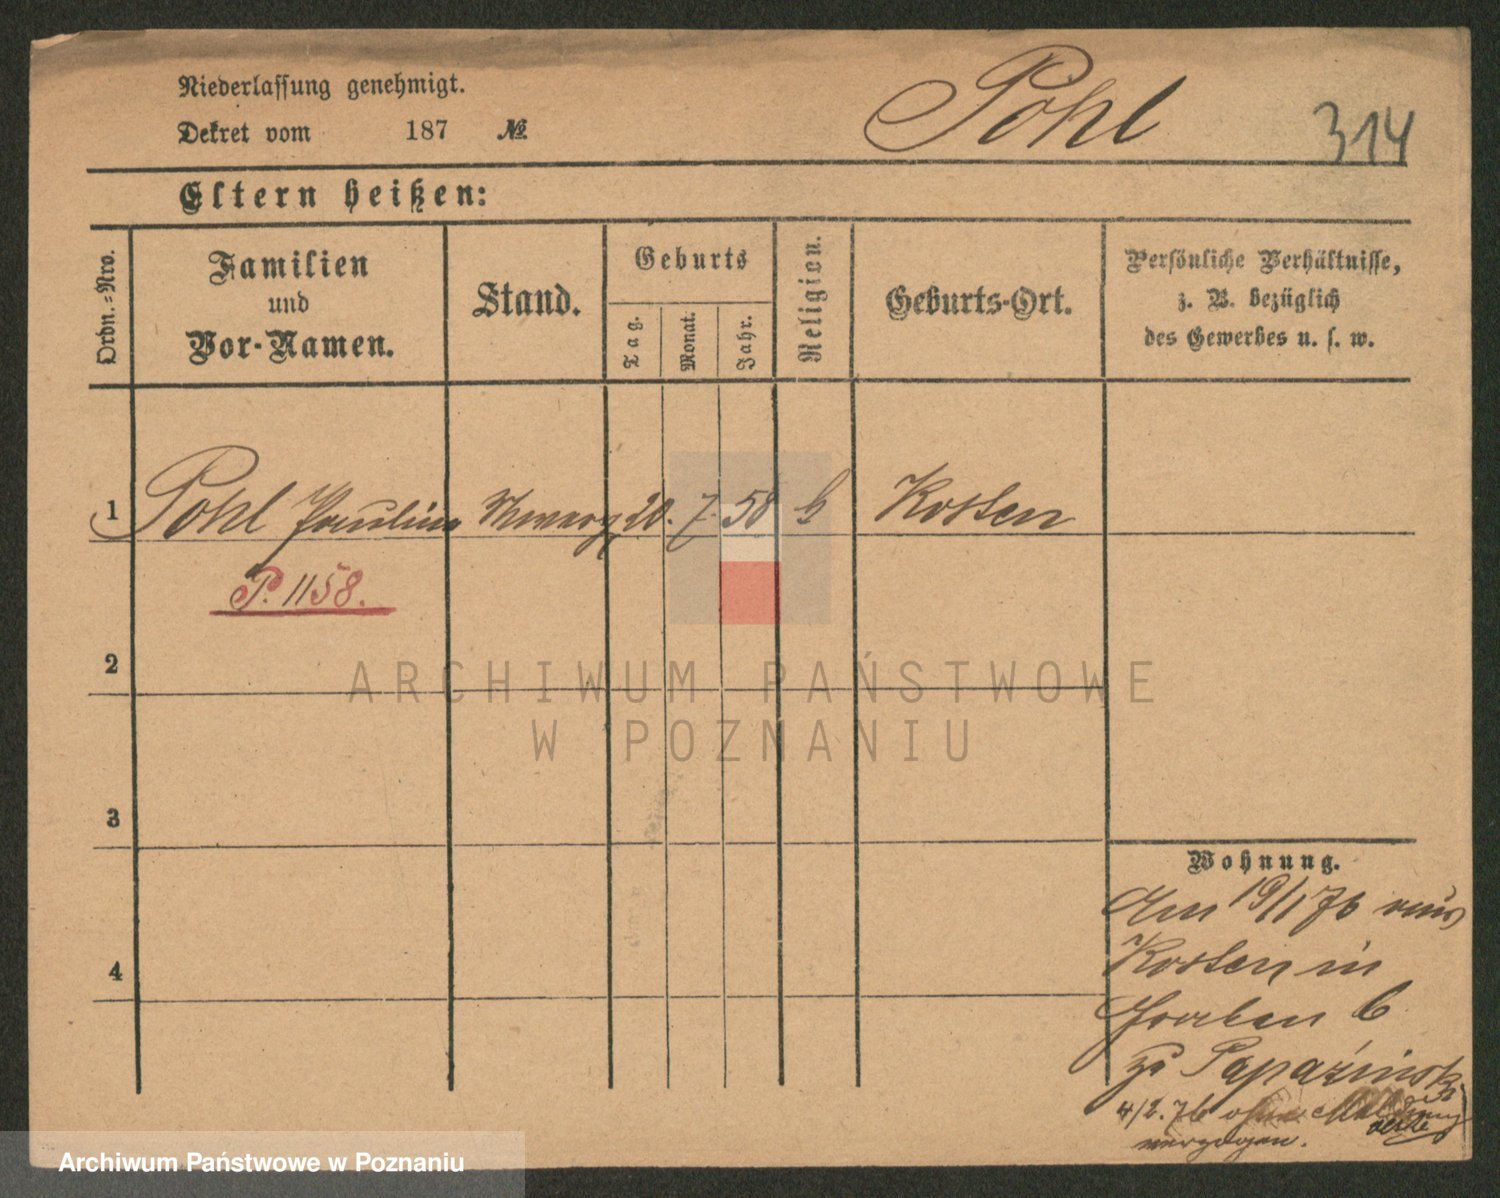 Niederlassung genehmigt.
Dekret vom 187 №
Pohl
314
Eltern heißen:
Ordn.-Nro.
Familien
und
Vor-Namen.
Stand.
Geburts
Tag.
Monat.
Jahr.
Religion.
Geburts-Ort.
Persönliche Verhältnisse,
z. B. bezüglich
des Gewerbes u. s. w.
1 Pohl Pauline 20. 7. 58 Kosten
P. 1158.
2
ARCHIWUM PAŃSTWOWE
W POZNANIU
3
Wohnung.
Am 19/1 76 aus
Kosten in
Graben 6
zu Paparzinski
4
4/2. 76 ohne Meldung
verzogen.
Archiwum Państwowe w Poznaniu